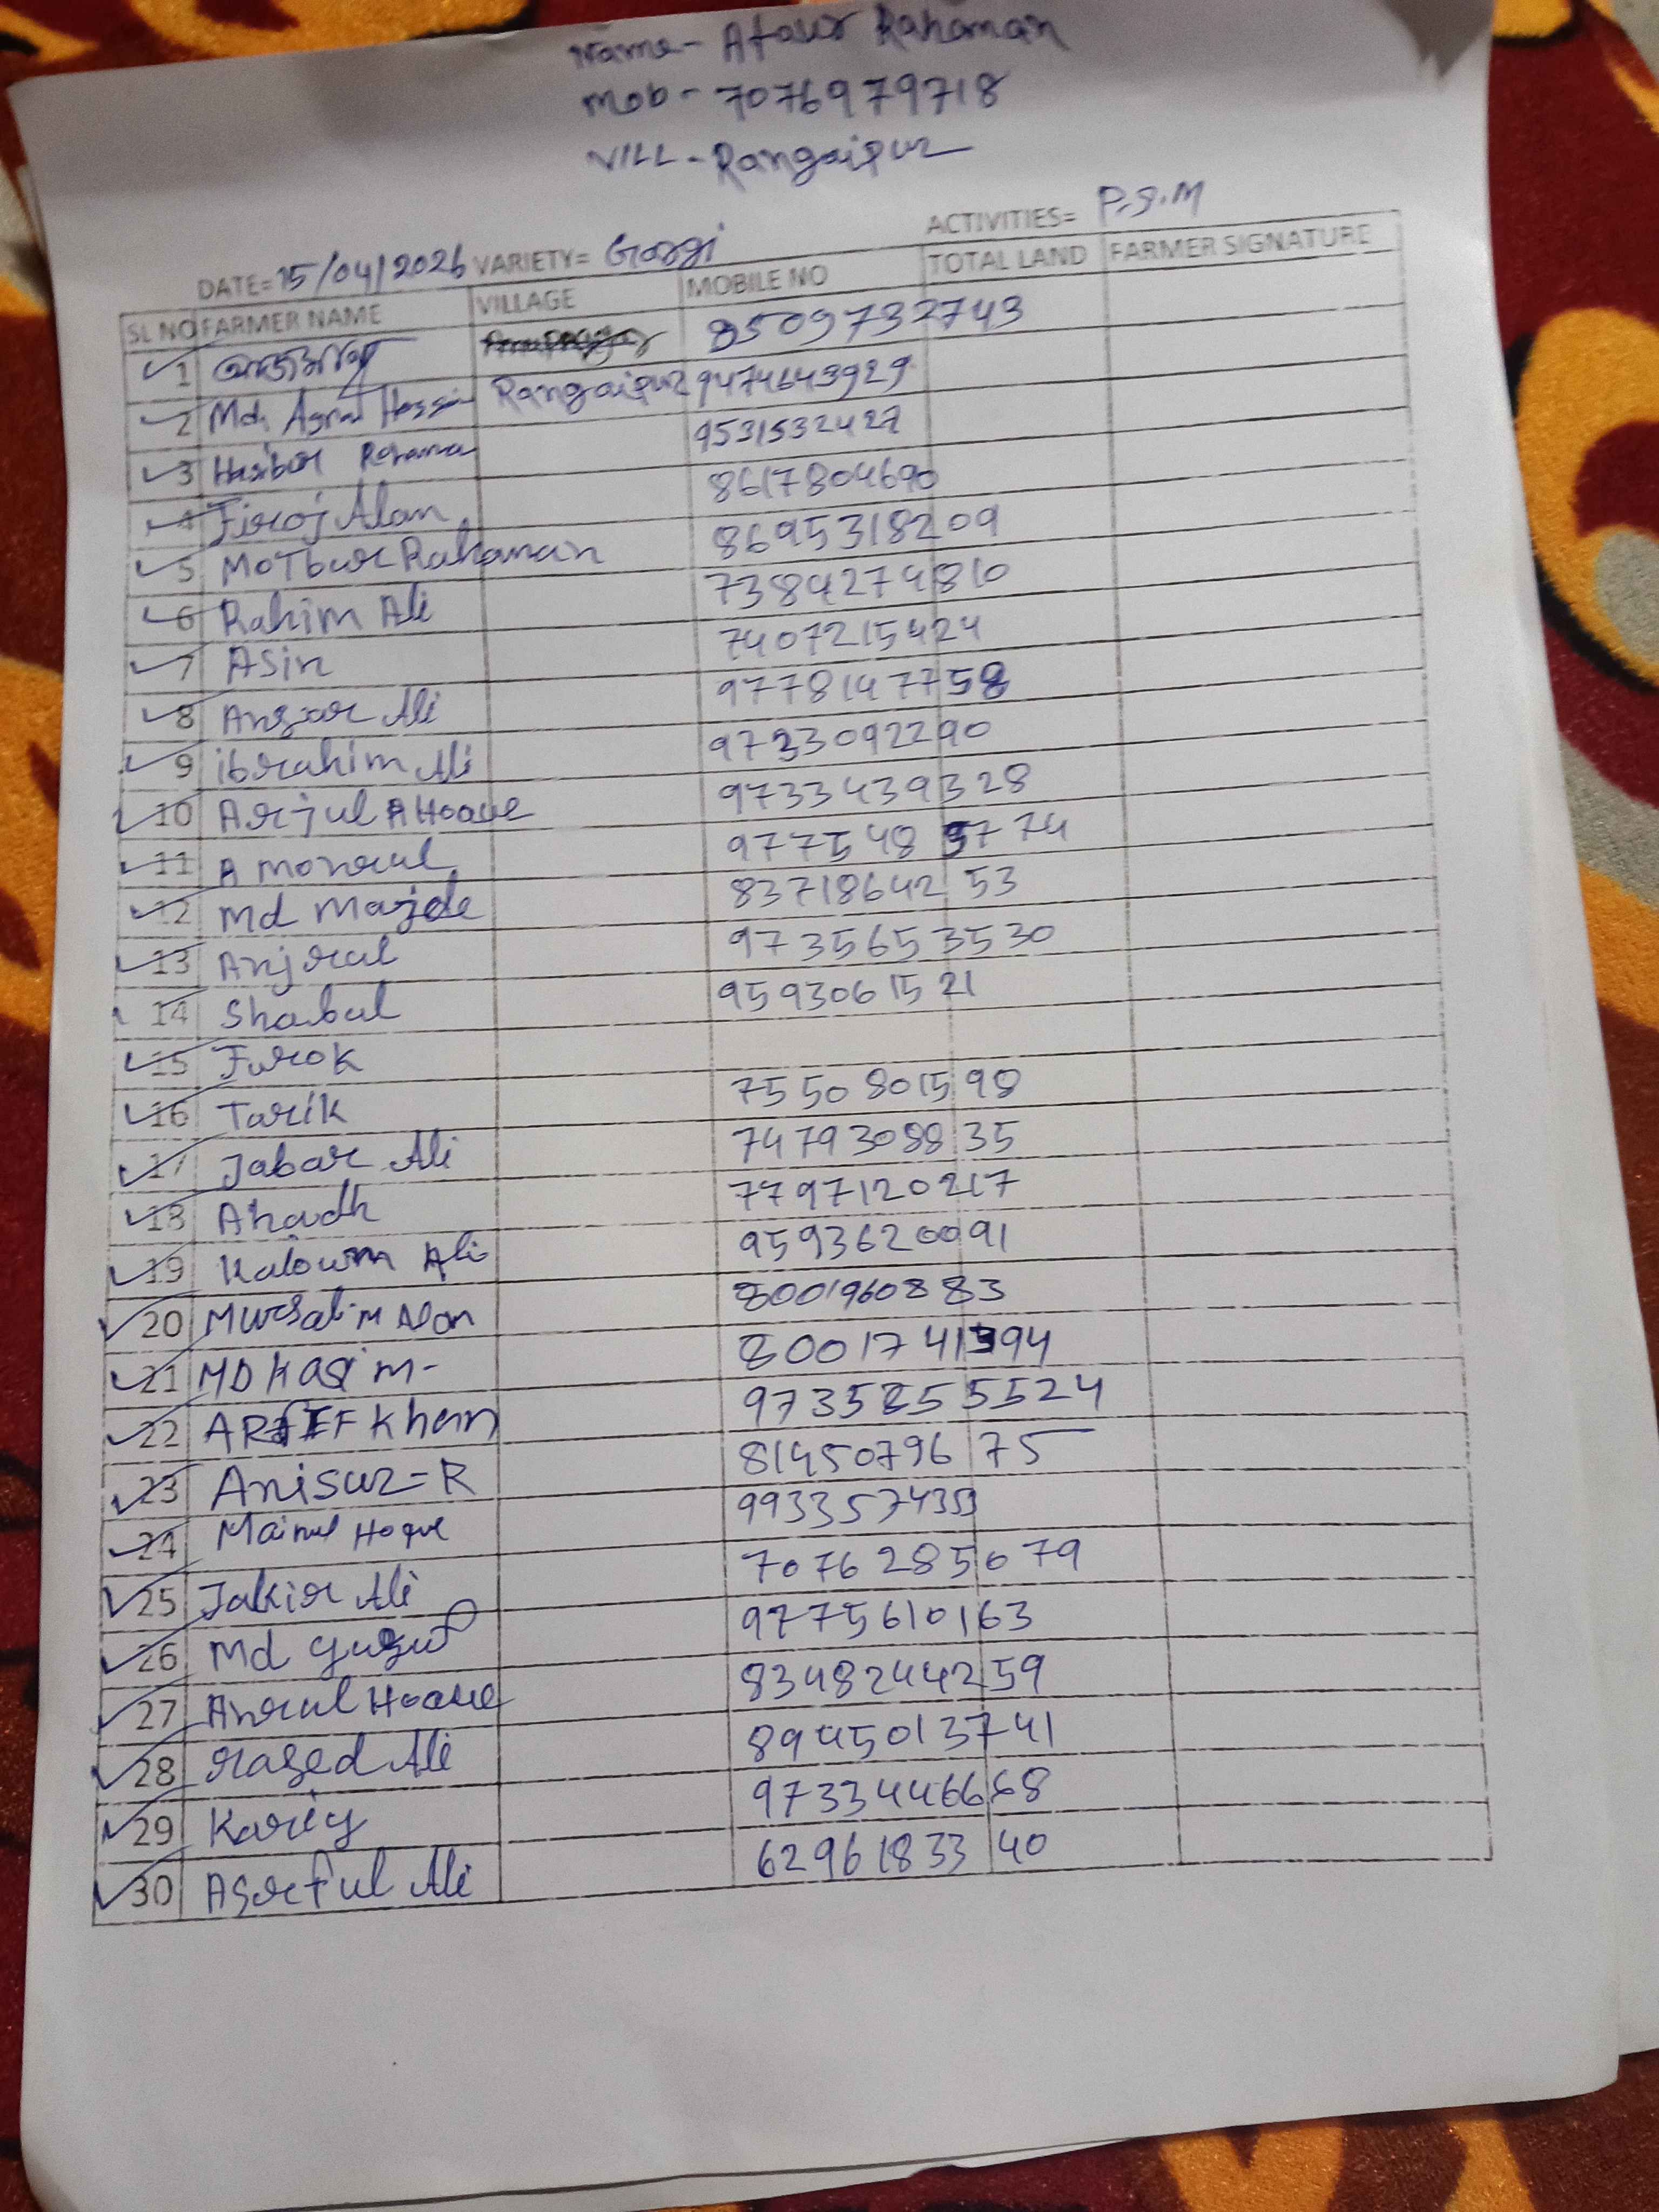 Name- Ataur Rahaman
Mob- 7076979718
VILL- Rangaipur
DATE= 15/04/2026 VARIETY= Gorgi ACTIVITIES= P.S.M
SL NO FARMER NAME VILLAGE MOBILE NO TOTAL LAND FARMER SIGNATURE
1 8509732743
2 Md. Hossin Rangaipur 9474643929
3 Hasibur Rohaman 9531532427
4 Firoj Alan 8617804690
5 MoTbur Rahaman 8695318209
6 Rahim Ali 7384274810
7 Asin 7407215424
8 Angsar Ali 9778147758
9 ibrahim Ali 9733092290
10 Arjul A Hoaue 9733439328
11 A monrul 9775489774
12 Md Majde 8371864253
13 Anjrul 9735653530
14 Shabul 9593061521
15 Furok
16 Tarik 7550801598
17 Jabar Ali 7479308835
18 Ahadh 7797120217
19 Kaloum Ali 9593620091
20 Mursalim Alon 8001960883
21 MD Kasim- 8001741394
22 ARIEF Khan 9735855524
23 Anisur=R 8145079675
24 Mainul Hoque 9933574353
25 Jakir Ali 7076285079
26 Md yusuf 9775610163
27 Anrul Hoaue 8348244259
28 rased Ali 8945013741
29 Kariy 9733446668
30 Asrful Ali 6296183340